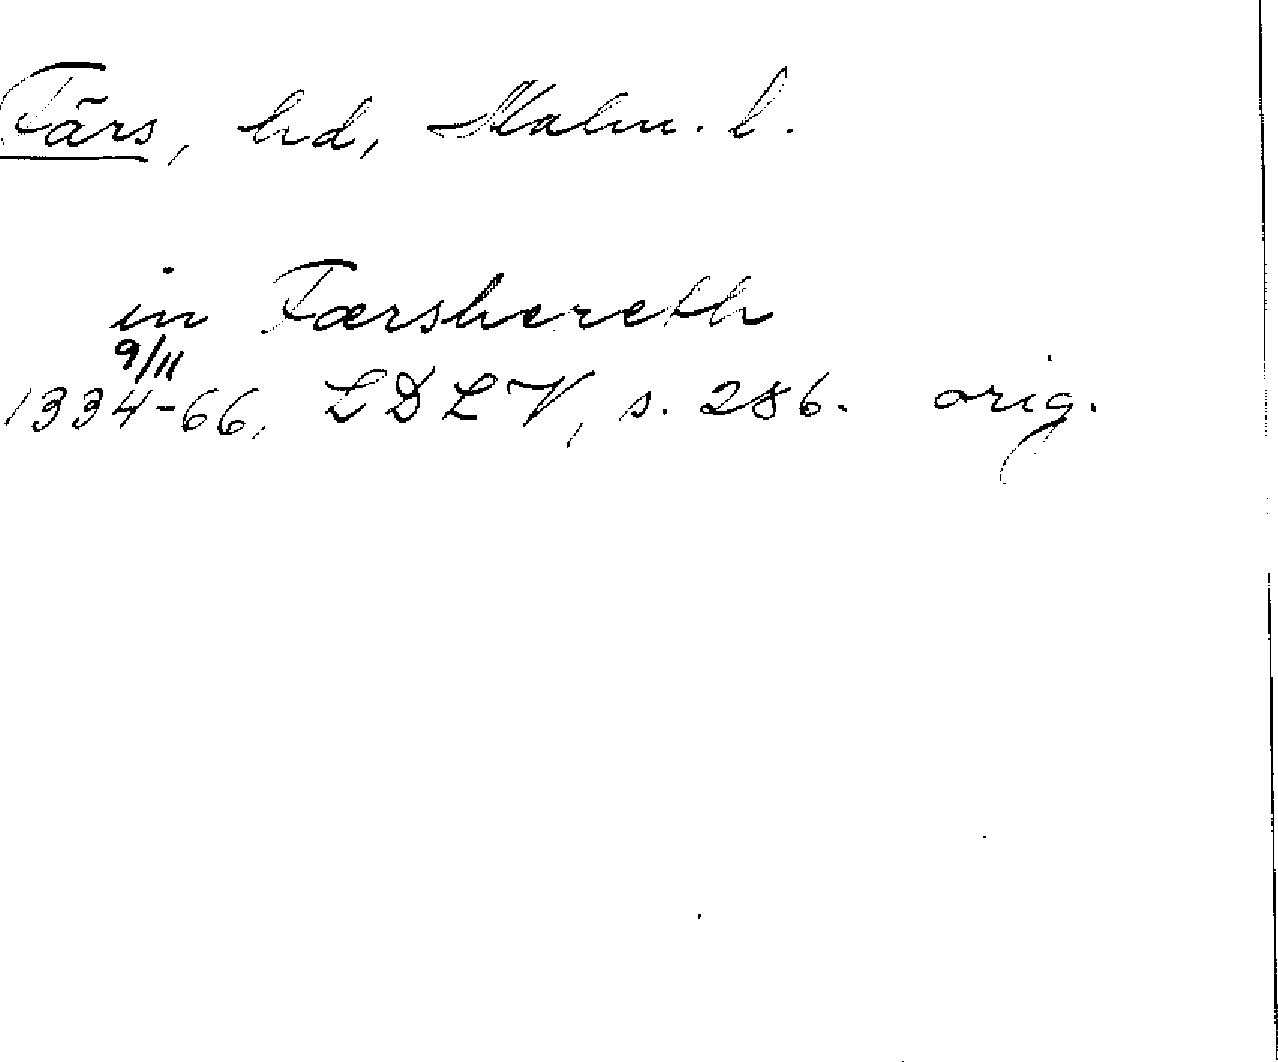 Färs, hd, Malm. l.
in Færshereth
9/11
1334-66, LDLV, s. 286. orig.